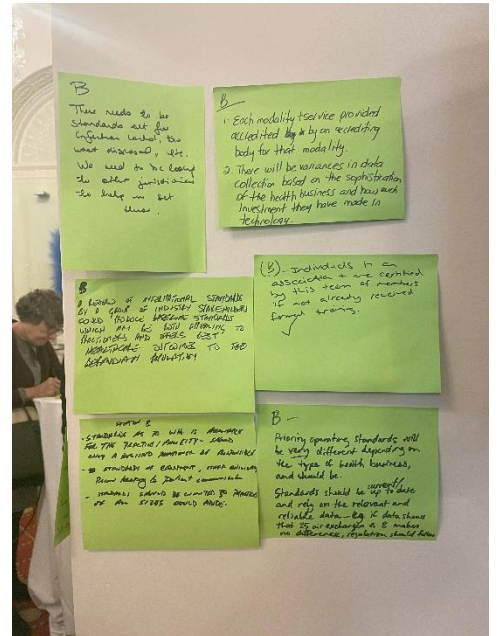 B
There needs to be
standards set for
infection control, the
waste disposal, etc.
We need to be looking
to other jurisdictions
to help us set
these.
B
1. Each modality + service provided
accredited by an accrediting
body for that modality.
2. There will be variances in data
collection based on the sophistication
of the health business and how much
investment they have made in
technology.
B
A REVIEW OF INTERNATIONAL STANDARDS
BY A GROUP OF INDUSTRY STAKEHOLDERS
COULD PRODUCE BASELINE STANDARDS
WHICH MAY BE BOTH APPEALING TO
PRACTITIONERS AND OFFERS BEST
HEALTHCARE OUTCOMES TO THE
BERMUDIAN POPULATION
(B) - Individuals in an
association + are certified
by this team of members
if not already received
formal training.
B
- STANDARDS AS TO WHO IS
FOR THE PRACTICE/FACILITY - SHOULD
ONLY A
- STANDARDS OF EQUIPMENT,
to Patient communication
- STANDARDS SHOULD BE SO PRACTICES
OF ALL SIZES COULD
B -
Priority operating standards will
be very different depending on
the type of health business,
and should be.
Standards should be current/up to date
and rely on the relevant and
reliable data - eg if data shows
that 25 air exchanges vs 8 makes
no difference, regulation should follow